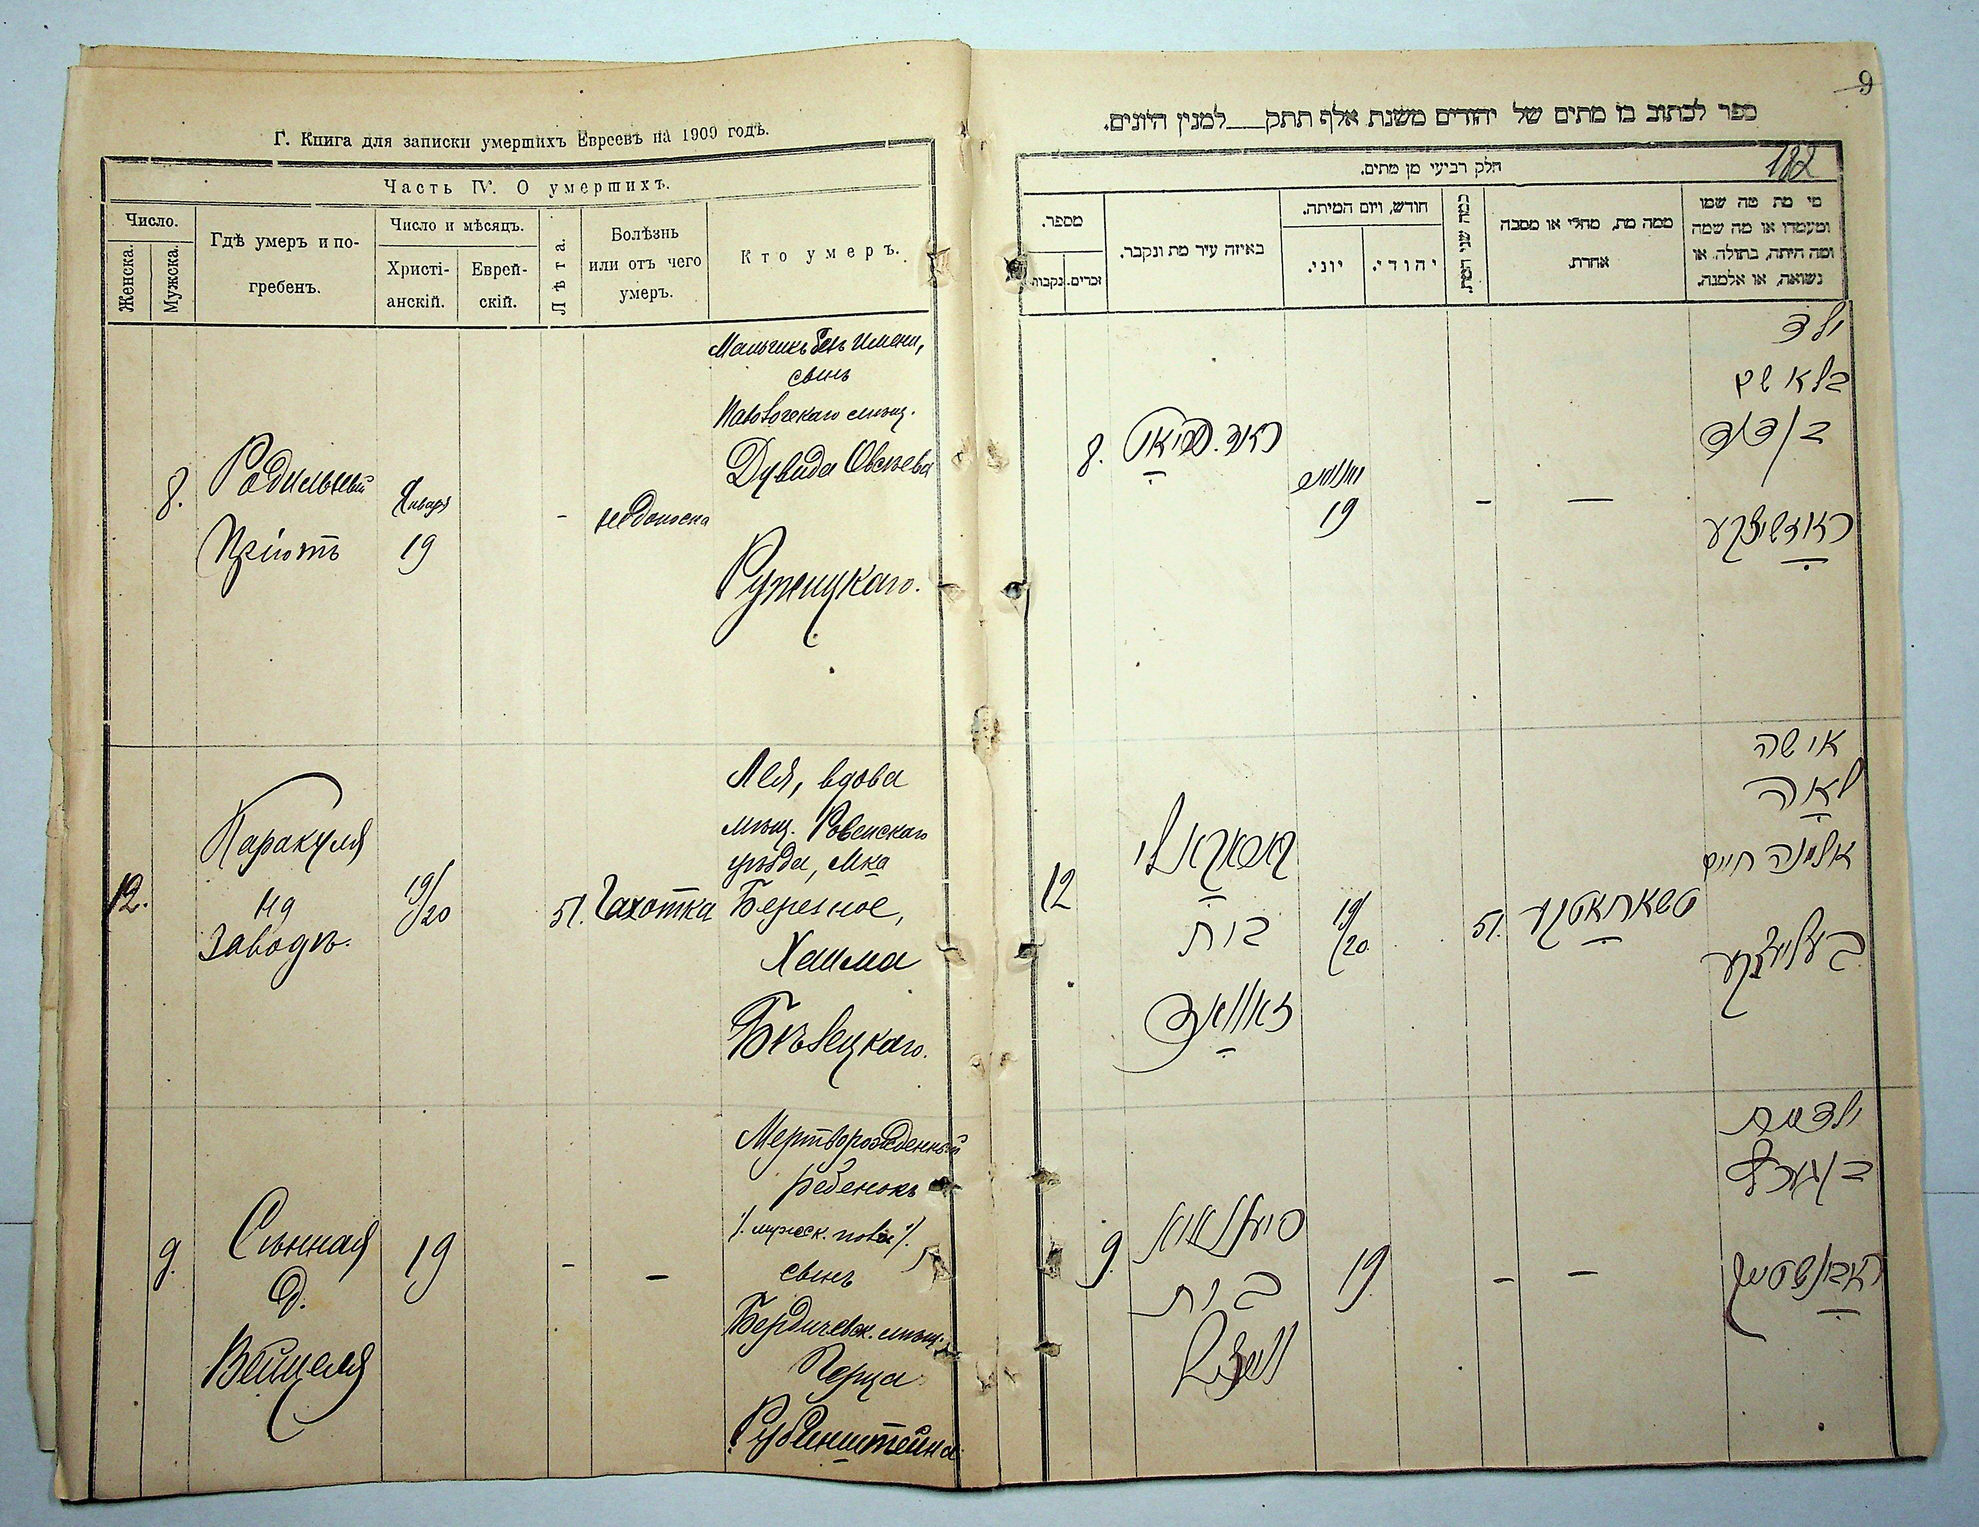 Г. Книга для записки умершихъ Евреевъ на 1909 годъ.
Часть IV. О умершихъ.
Число.
Женска.
Мужска.
Гдѣ умеръ и по-
гребенъ.
Число и мѣсяцъ.
Христі-
анскій.
Еврей-
скій.
Лѣта.
Болѣзнь
или отъ чего
умеръ.
Кто умеръ.
8.
Родильный
Пріютъ
Января
19
-
недоноска
Мальчикъ безъ имени,
сынъ
мѣщ.
Дувида Овсѣева
Ружицкаго.
12.
Паракуля
на
Заводѣ.
19/20
51.
Чахотка
Лея, вдова
мѣщ. Ровенскаго
уѣзда, м-ка
Березное,
Хаима
Бѣлецкаго.
9.
Сѣнная
д.
Вейцеля
19
-
-
Мертворожденный
ребенокъ
/. мужск. пола /.
сынъ
Бердичевск. мѣщ.
Перца
Рубинштейна
9
ספר לכתוב בו מתים של יהודים משנת אלף תתק למנין היונים.
182
חלק רביעי מן מתים.
מספר.
נקבות.
זכרים.
באיזה עיר מת ונקבר.
חודש, ויום המיתה.
יוני.
יהודי.
כמה שני המת.
ממה מת, מחלי או מסבה
אחרת.
מי מת מה שמו
ומעמדו או מה שמה
ומה היתה, בתולה או
נשואה, או אלמנה.
8.
19
-
-
ילד
בלא שם
בן דוד
12
בית
זאוואד
19/20
51.
אישה
לאה
אלמנה חיים
בעליצקע
9.
בית
19
-
-
ילד מת
בן פרץ
ראבינשטיין